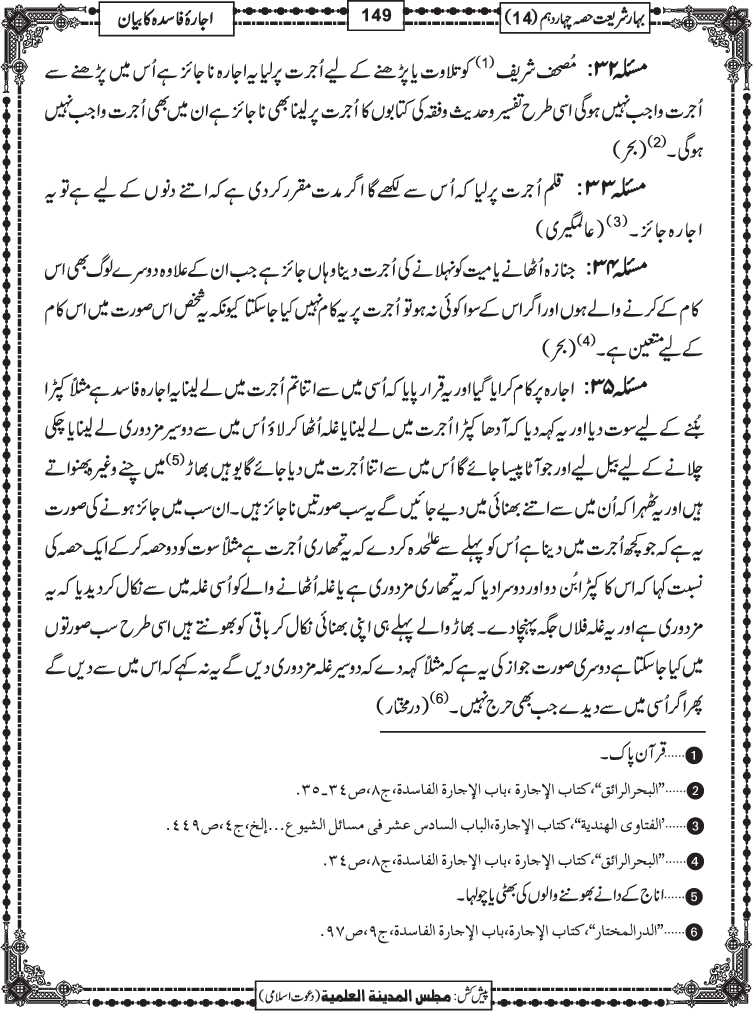 بہار شریعت حصہ چہاردہم (14)
149
اجارۂ فاسدہ کا بیان
مسئلہ ۳۲: مُصحف شریف (1) کو تلاوت یا پڑھنے کے لیے اُجرت پر لیا یہ اجارہ ناجائز ہے اُس میں پڑھنے سے
اُجرت واجب نہیں ہوگی اسی طرح تفسیر و حدیث و فقہ کی کتابوں کا اُجرت پر لینا بھی ناجائز ہے ان میں بھی اُجرت واجب نہیں
ہوگی۔ (2) (بحر)
مسئلہ ۳۳: قلم اُجرت پر لیا کہ اُس سے لکھے گا اگر مدت مقرر کردی ہے کہ اتنے دنوں کے لیے ہے تو یہ
اجارہ جائز۔ (3) (عالمگیری)
مسئلہ ۳۴: جنازہ اُٹھانے یا میت کو نہلانے کی اُجرت دینا وہاں جائز ہے جب ان کے علاوہ دوسرے لوگ بھی اس
کام کے کرنے والے ہوں اور اگر اس کے سوا کوئی نہ ہو تو اُجرت پر یہ کام نہیں کیا جاسکتا کیونکہ یہ شخص اس صورت میں اس کام
کے لیے متعین ہے۔ (4) (بحر)
مسئلہ ۳۵: اجارہ پر کام کرایا گیا اور یہ قرار پایا کہ اُسی میں سے اتنا تم اُجرت میں لے لینا یہ اجارہ فاسد ہے مثلاً کپڑا
بُننے کے لیے سوت دیا اور یہ کہہ دیا کہ آدھا کپڑا اُجرت میں لے لینا یا غلہ اُٹھا کر لاؤ اُس میں سے دو سیر مزدوری لے لینا یا چکی
چلانے کے لیے بیل لیے اور جو آٹا پیسا جائے گا اُس میں سے اتنا اُجرت میں دیا جائے گا یوہیں بھاڑ (5) میں چنے وغیرہ بھنواتے
ہیں اور یہ ٹھہرا کہ اُن میں سے اتنے بھنائی میں دیے جائیں گے یہ سب صورتیں ناجائز ہیں۔ ان سب میں جائز ہونے کی صورت
یہ ہے کہ جو کچھ اُجرت میں دینا ہے اُس کو پہلے سے علٰحدہ کردے کہ یہ تمھاری اُجرت ہے مثلاً سوت کو دو حصہ کرکے ایک حصہ کی
نسبت کہا کہ اس کا کپڑا بُن دو اور دوسرا دیا کہ یہ تمھاری مزدوری ہے یا غلہ اُٹھانے والے کو اُسی غلہ میں سے نکال کر دیدیا کہ یہ
مزدوری ہے اور یہ غلہ فلاں جگہ پہنچا دے۔ بھاڑ والے پہلے ہی اپنی بھنائی نکال کر باقی کو بھونتے ہیں اسی طرح سب صورتوں
میں کیا جاسکتا ہے دوسری صورت جواز کی یہ ہے کہ مثلاً کہہ دے کہ دو سیر غلہ مزدوری دیں گے یہ نہ کہے کہ اس میں سے دیں گے
پھر اگر اُسی میں سے دیدے جب بھی حرج نہیں۔ (6) (درمختار)
1......قرآن پاک۔
2......"البحرالرائق"، کتاب الإجارة، باب الإجارة الفاسدة، ج٨، ص٣٤۔٣٥.
3......"الفتاوى الهندية"، کتاب الإجارة، الباب السادس عشر فی مسائل الشیوع...إلخ، ج٤، ص٤٤٩.
4......"البحرالرائق"، کتاب الإجارة، باب الإجارة الفاسدة، ج٨، ص٣٤.
5......اناج کے دانے بھوننے والوں کی بھٹی یا چولہا۔
6......"الدرالمختار"، کتاب الإجارة، باب الإجارة الفاسدة، ج٩، ص٩٧.
پیش کش: مجلس المدینۃ العلمیۃ (دعوت اسلامی)